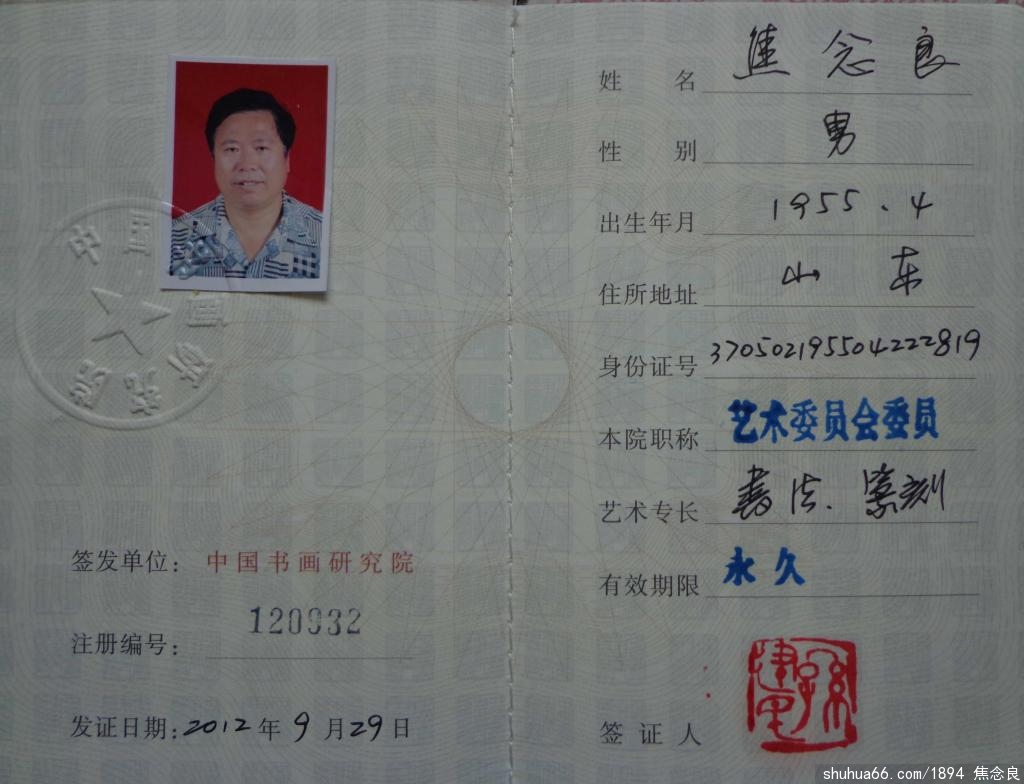 中国书画研究院
签发单位：中国书画研究院
注册编号：120932
发证日期：2012年9月29日
姓名 焦念良
性别 男
出生年月 1955.4
住所地址 山东
身份证号 370502195504222819
本院职称 艺术委员会委员
艺术专长 书法、篆刻
有效期限 永久
签证人
shuhua66.com/1894 焦念良